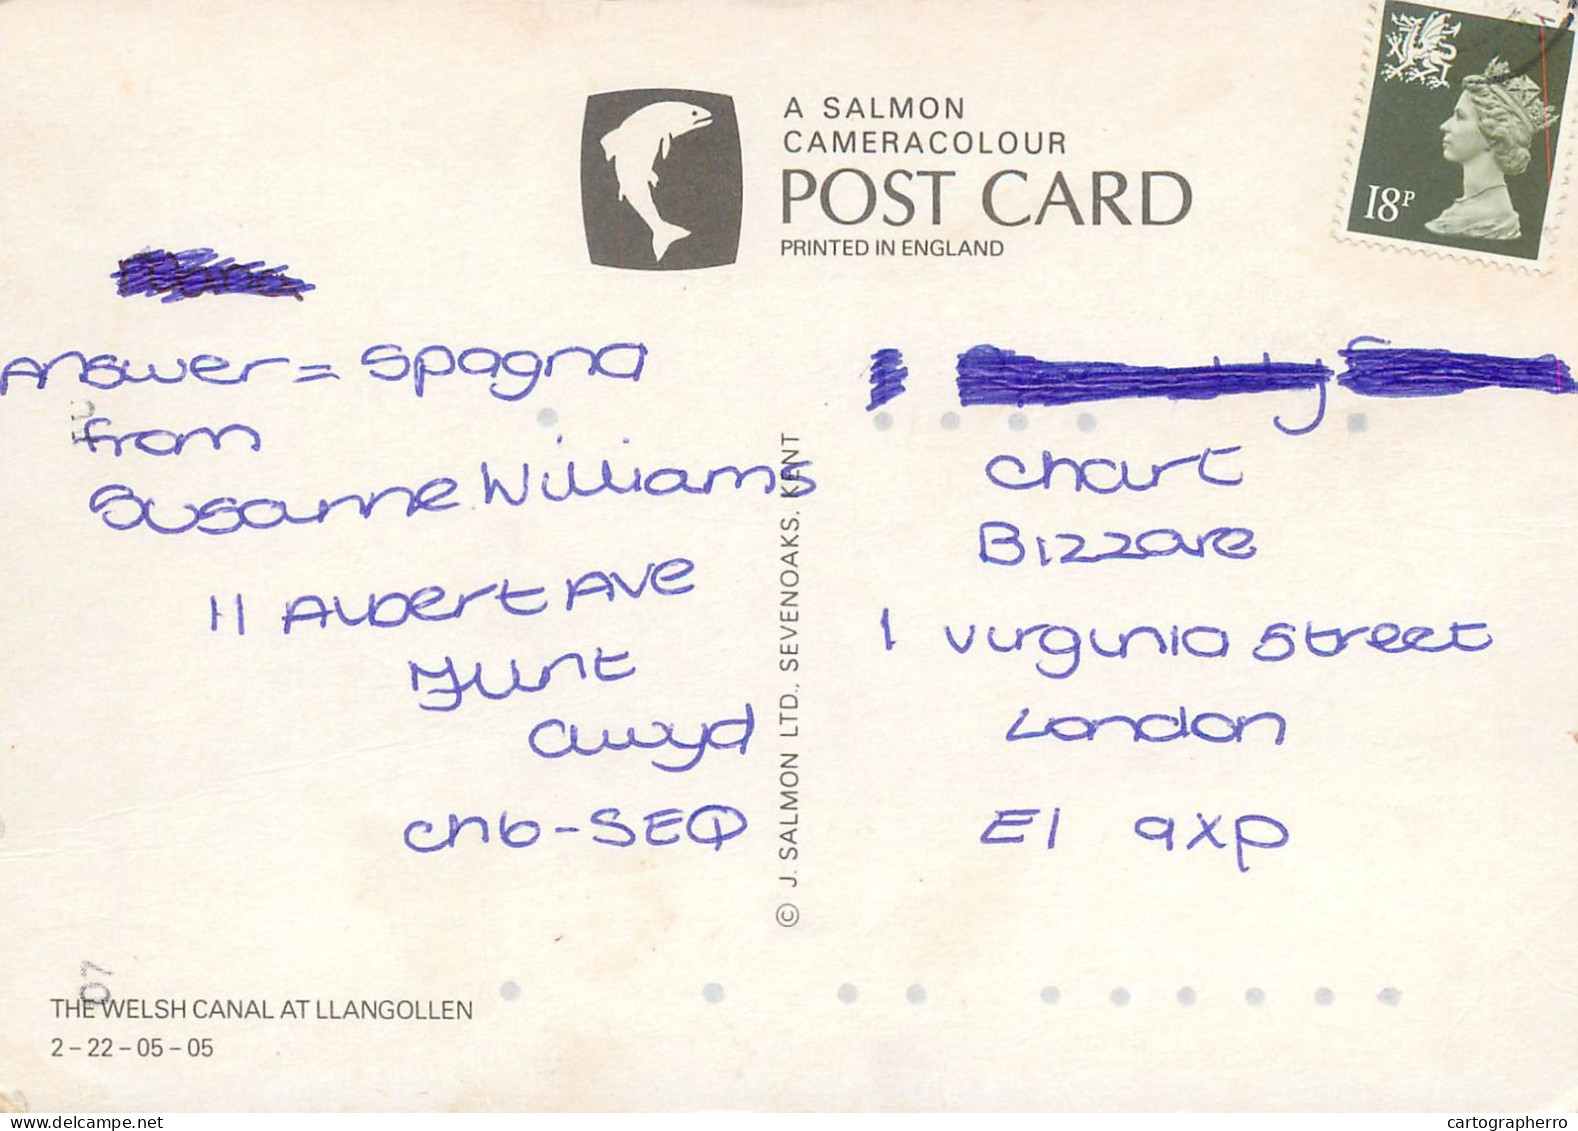 A SALMON
CAMERACOLOUR
POST CARD
PRINTED IN ENGLAND
18P
Answer = Spagna
from
Susanne Williams
11 Albert Ave
Flint
Clwyd
CH6-SEQ
© J. SALMON LTD., SEVENOAKS, KENT
Chart
Bizzare
1 Virginia Street
London
E1 9XP
07
THE WELSH CANAL AT LLANGOLLEN
2-22-05-05
www.delcampe.net
cartographerro